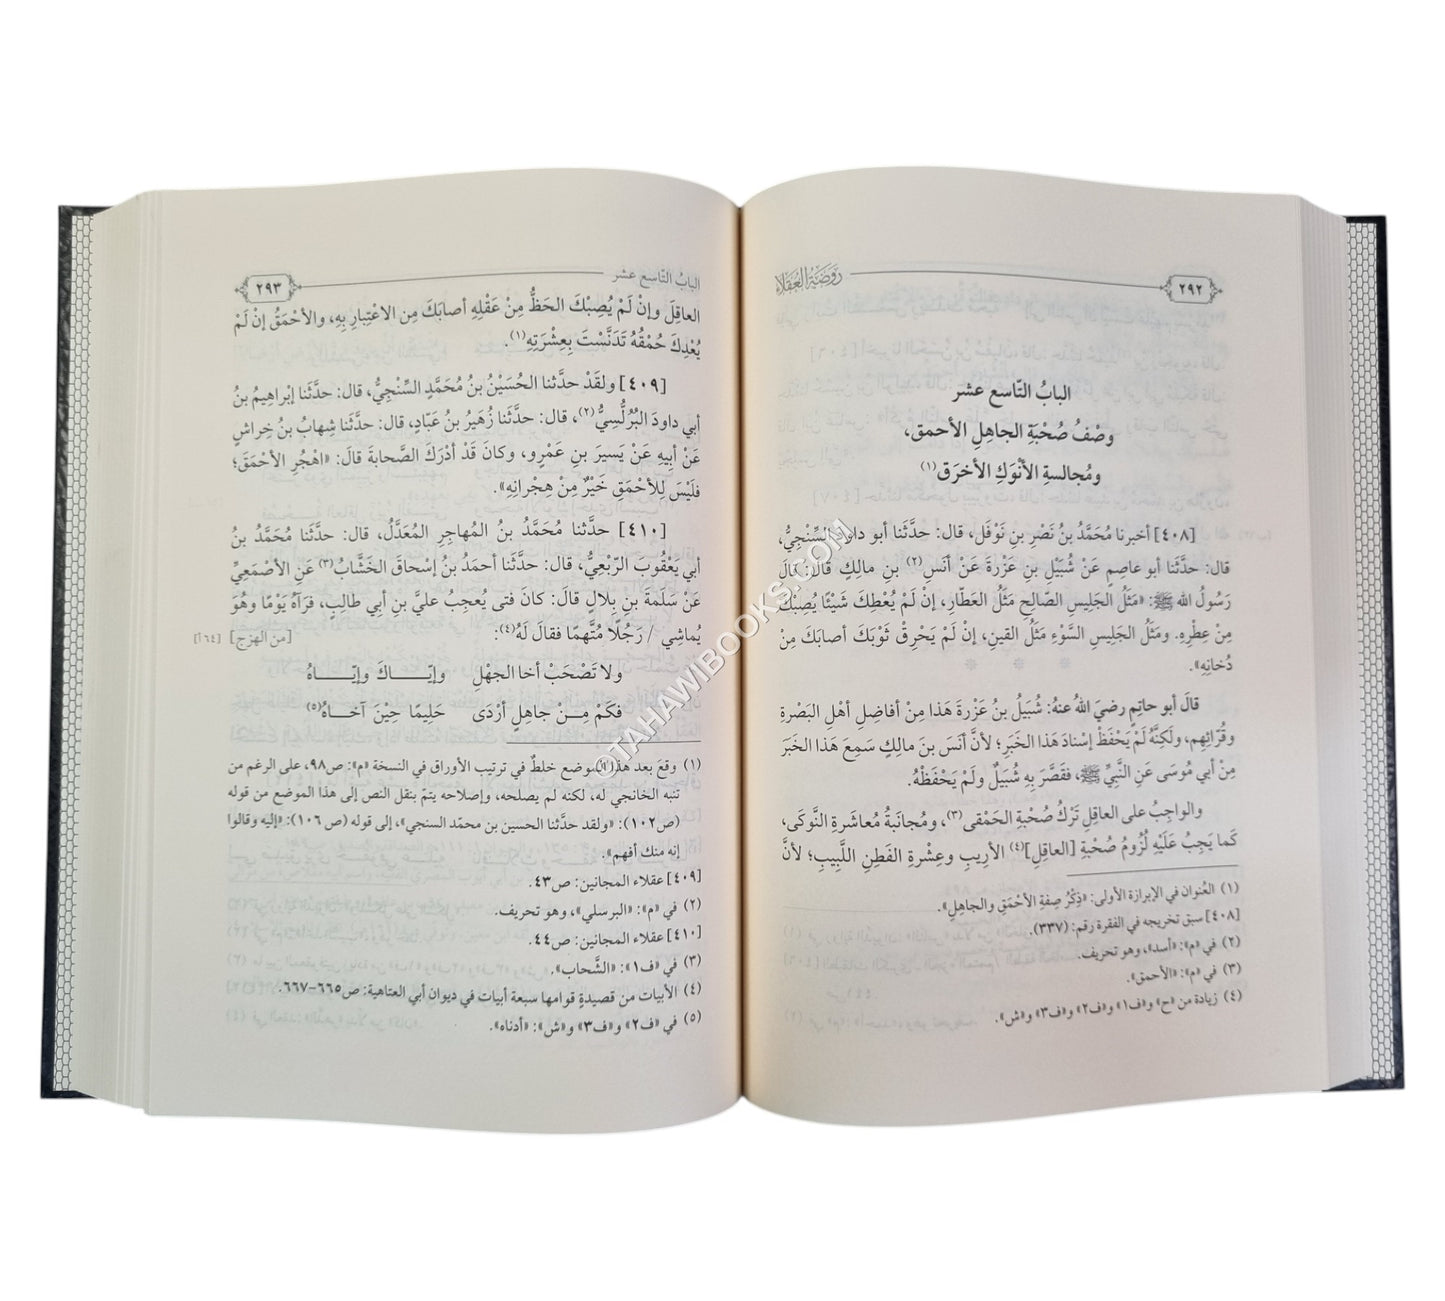 ٢٩٢
رَوضَة العُقَلاء
البابُ التّاسع عشر
وصْفُ صُحْبَةِ الجاهِلِ الأحمق،
ومُجالسةِ الأنْوَكِ الأخرَق(١)
[٤٠٨] أخبرنا مُحَمَّدُ بنُ نَصْرِ بنِ نَوْفَل، قال: حدَّثَنا أبو داودَ السِّنْجِيُّ،
قال: حدَّثَنا أبو عاصِمٍ عَنْ شُبَيْلِ بنِ عَزْرةَ عَنْ أنَسِ(٢) بنِ مالِكٍ قالَ: قالَ
رَسُولُ الله ﷺ: «مَثَلُ الجَلِيسِ الصّالِحِ مَثَلُ العَطّارِ، إنْ لَمْ يُعْطِكَ شَيْئًا يُصِبْكَ
مِنْ عِطْرِهِ. ومَثَلُ الجَلِيسِ السَّوْءِ مَثَلُ القينِ، إنْ لَمْ يَحْرِقْ ثَوْبَكَ أصابَكَ مِنْ
دُخانِهِ».
قالَ أبو حاتِمٍ رضيَ اللهُ عنهُ: شُبَيلُ بنُ عَزْرةَ هَذا مِنْ أفاضِلِ أهْلِ البَصْرةِ
وقُرّائِهِم، ولَكِنَّهُ لَمْ يَحْفَظْ إسْنادَ هَذا الخَبَرِ؛ لأنَّ أنَسَ بنَ مالِكٍ سَمِعَ هَذا الخَبَرَ
مِنْ أبي مُوسَى عَنِ النَّبِيِّ ﷺ، فقَصَّرَ بِهِ شُبَيلٌ ولَمْ يَحْفَظْهُ.
والواجِبُ على العاقِلِ تَرْكُ صُحْبَةِ الحَمْقى(٣)، ومُجانَبةُ مُعاشَرةِ النَّوكَى،
كَما يَجِبُ عَلَيْهِ لُزُومُ صُحْبَةِ [العاقِلِ](٤) الأرِيبِ وعِشْرةِ الفَطِنِ اللَّبِيبِ؛ لأنَّ
(١) العُنوان في الإبرازة الأولى: «ذِكْرُ صِفةِ الأحْمَقِ والجاهِلِ».
[٤٠٨] سبق تخريجه في الفقرة رقم: (٣٣٧).
(٢) في «م»: «أسد»، وهو تحريف.
(٣) في «م»: «الأحمق».
(٤) زيادة من «ح» و«ف١» و«ف٢» و«ف٣» و«ش».
البابُ التّاسع عشر
٢٩٣
العاقِلَ وإنْ لَمْ يُصِبْكَ الحَظُّ مِنْ عَقْلِهِ أصابَكَ مِن الاعْتِبارِ بِهِ، والأحْمَقُ إنْ لَمْ
يُعْدِكَ حُمْقُهُ تَدَنَّسْتَ بِعِشْرَتِهِ(١).
[٤٠٩] ولقَدْ حدَّثنا الحُسَيْنُ بنُ مُحَمَّدٍ السِّنْجِيُّ، قال: حدَّثَنا إبْراهِيمُ بنُ
أبي داودَ البُرُلُّسِيُّ(٢)، قال: حدَّثَنا زُهَيْرُ بنُ عَبّادٍ، قال: حدَّثَنا شِهابُ بنُ خِراشٍ
عَنْ أبِيهِ عَنْ يَسيرَ بنِ عَمْرٍو، وكانَ قَدْ أدْرَكَ الصَّحابةَ قالَ: «اهْجُرِ الأحْمَقَ؛
فلَيْسَ لِلأحْمَقِ خَيْرٌ مِنْ هِجْرانِهِ».
[٤١٠] حدَّثنا مُحَمَّدُ بنُ المُهاجِرِ المُعَدَّلُ، قال: حدَّثَنا مُحَمَّدُ بنُ
أبي يَعْقُوبَ الرَّبْعِيُّ، قال: حدَّثَنا أحمَدُ بنُ إسْحاقَ الخَشّابُ(٣) عَنِ الأصْمَعِيِّ
عَنْ سَلَمةَ بنِ بِلالٍ قالَ: كانَ فتى يُعجِبُ عليَّ بنِ أبي طالِبٍ، فرَآهُ يَوْمًا وهُوَ
يُماشِي / رَجُلًا مُتَّهمًا فقالَ لَهُ(٤): [من الهزج] [٦٤أ]
ولا تَصْحَبْ أخا الجَهْلِ وإيّـــــاكَ وإيّـــــاهُ
فكَمْ مِـــنْ جاهِلٍ أرْدَى حَلِيمًا حِيْنَ آخـــاهُ(٥)
(١) وقعَ بعد هذا الموضع خلطٌ في ترتيب الأوراق في النسخة «م»: ص٩٨، على الرغم من
تنبه الخانجي له، لكنه لم يصلحه، وإصلاحه يتمّ بنقل النص إلى هذا الموضع من قوله
(ص١٠٢): «ولقد حدَّثنا الحسين بن محمّد السنجي»، إلى قوله (ص ١٠٦): «إليه وقالوا
إنه منك أفهم».
[٤٠٩] عقلاء المجانين: ص٤٣.
(٢) في «م»: «البرسلي»، وهو تحريف.
[٤١٠] عقلاء المجانين: ص٤٤.
(٣) في «ف١»: «الشَّحاب».
(٤) الأبيات من قصيدةٍ قوامها سبعة أبيات في ديوان أبي العتاهية: ص٦٦٥-٦٦٧.
(٥) في «ف٢» و«ف٣» و«ش»: «أدناه».
© TAHAWIBOOKS.COM